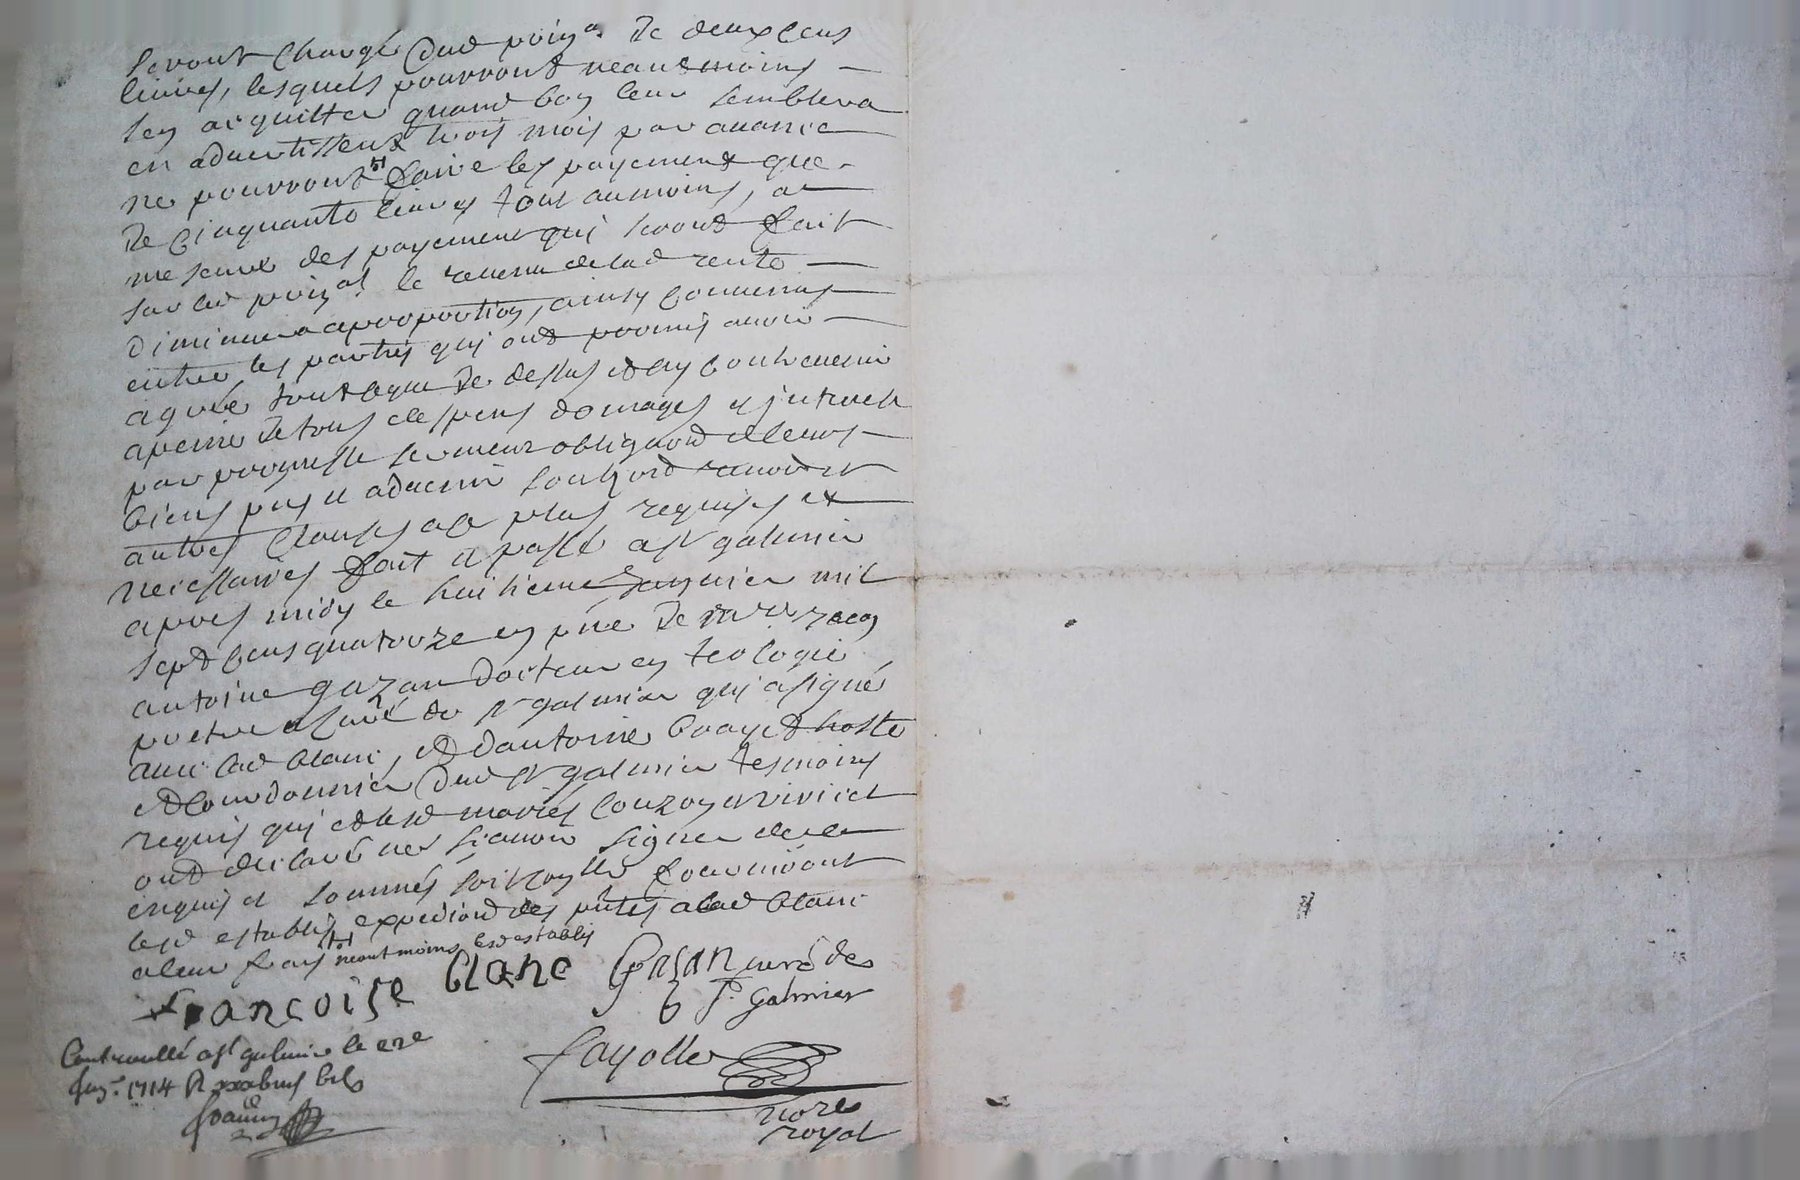 seront chargé dud prinal de deux cens
livres, lesquels pourront neantmoins
sen acquitter quand bon leur semblera
en advertissent trois mois par avance
ne pourront faire les payement que
de cinquante livres tout au moins, a
mesure des payement qui seront fait
sur led prinal le revenu de lad rente
diminuera a proportion, ainsy convenus
entre les parties qui ont promis avoir
agreé tout ce que de dessus et ny contrevenir
a peine de tous despens domages
par promesse serment obligaond de leurs
biens pnts et advenir soubz ond renond et
autres clauses a ce plus requises et
necessaires fait et passé a st galmier
apres midy le huitieme janvier mil
sept cens quatorze en pnce de
antoine gazan docteur en teologie
pretre et curé de st galmier qui a signé
avec lad blanc, et d'antoine hoste
et cordonnier dud st galmier tesmoins
requis qui et lesd mariés
ont declaré ne sçavoir signer de ce
enquis et sommés
lesd establis expediond des pntes a lad blanc
a leur frais neantmoins lesd establis
Françoise blanc Gasan curé de
St galmier
Fayolle
nore
royal
Controullé a st galmier le
janr 1714 R